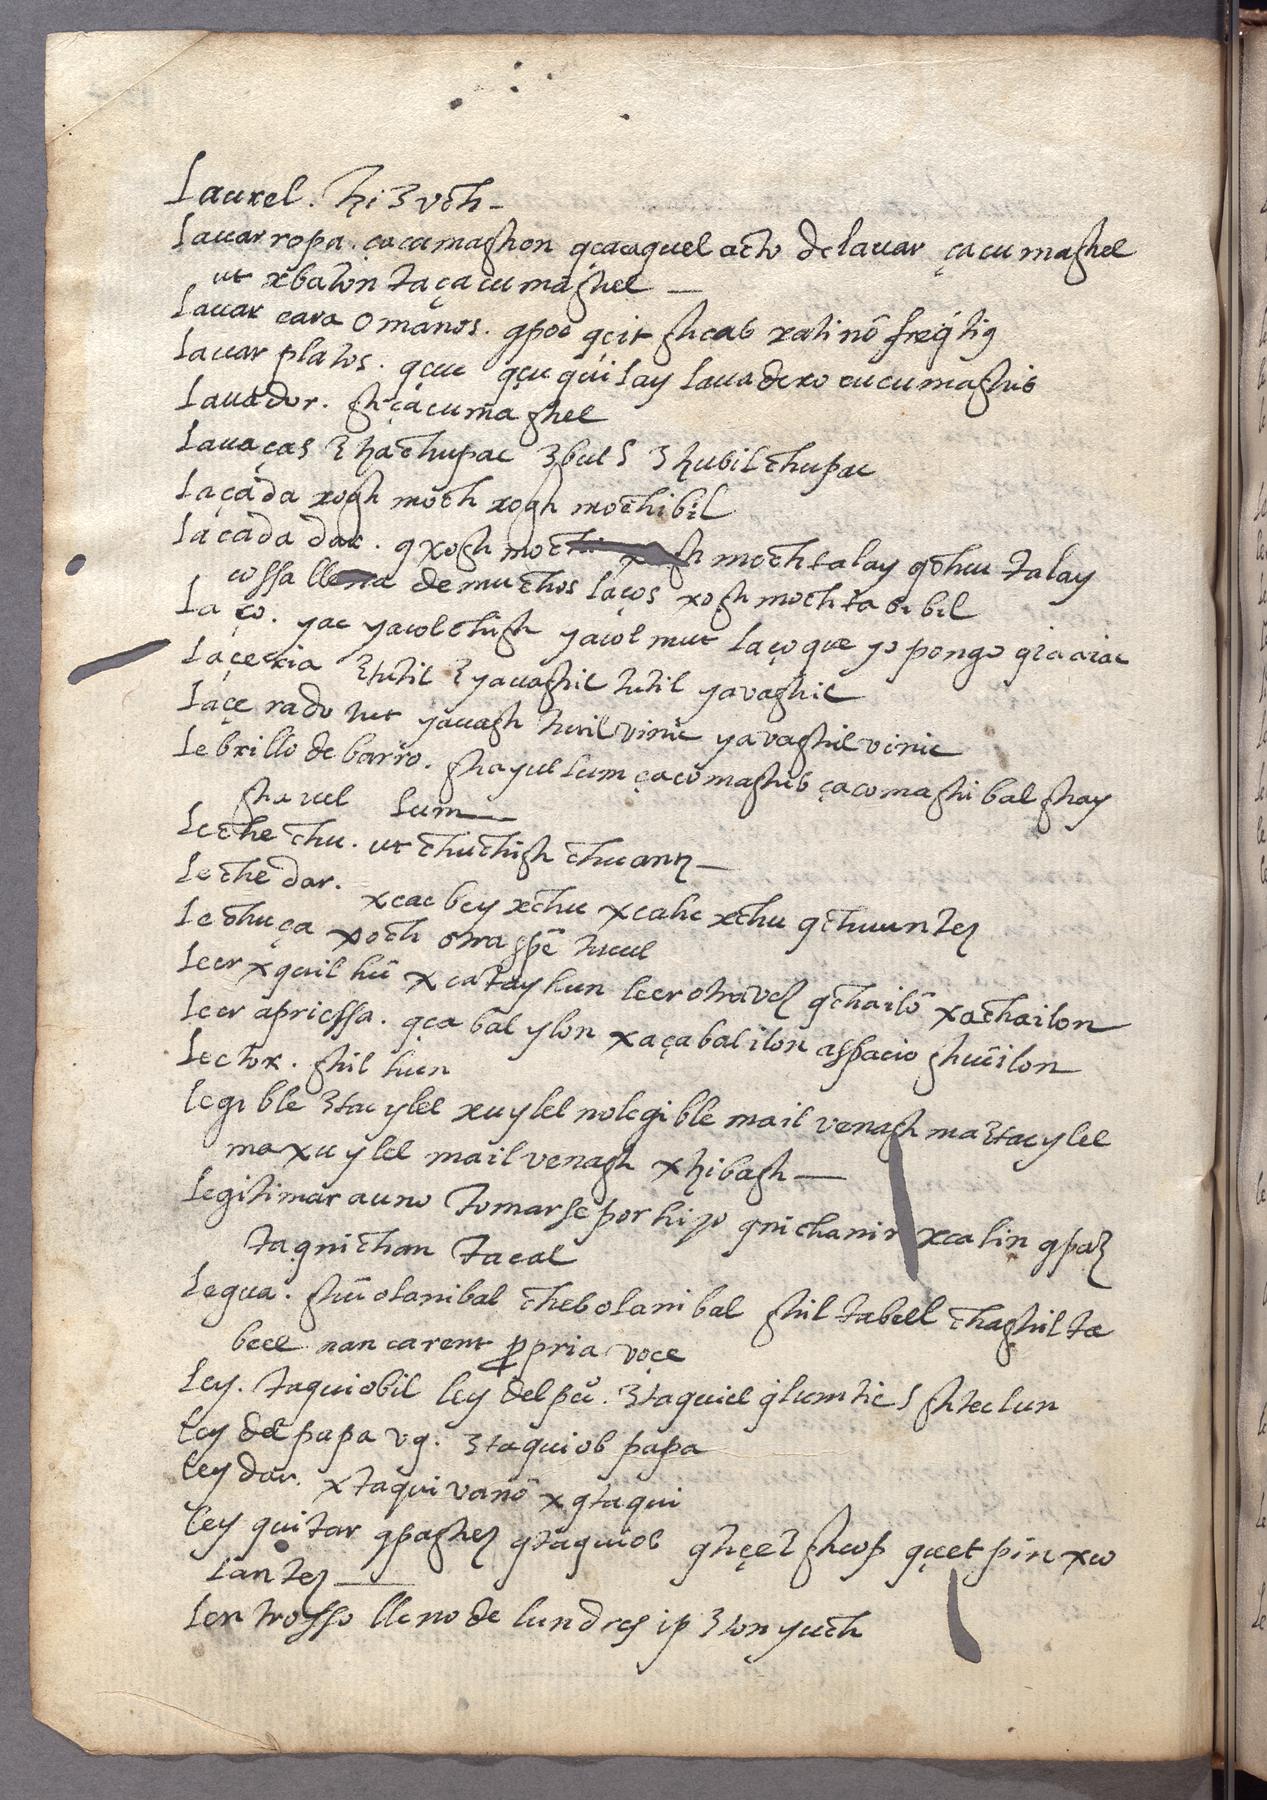 Laurel. hi3 vch –
Lauar ropa. çacumaghon qçacaquel acto de lauar çacumaghel
ut xbaton taçacumaghel —
Lauar cara o manos. qpoc qcit ghcab xatinō freq̄ tiꝯ
Lauar platos. qcuc qcu qui lay Lauadero cucumaghib
Lauador. ghçacumaghel
Lauaças ꜫ hachupac ꜫbul S ꜫhubil chupac
Laçada xogh moch xogh mochibil
Laçada dar. qxogh moch moch talay qchu talay
cossa llena de muchos laços xogh moch ta bibil
Laço. yac yacolchigh yacol mut Laço que yo pongo
Laçeria ꜫtutil ꜫyauaghil tutil yavaghil
Laçerado tut yauagh tutil vinic yavaghil vinic
Lebrillo de barro. ghayul lum çacomaghib çacomaghibal ghay
ghavul lum —
Leche chu. ut chuchigh chuann –
Leche dar. xcac bey xchu xcahc xchu qchuuntez
Lechuça xoch otra sp̄e tucul
Leer xquil hū xcatay hun leer otra vez qchailō xachailon
Leer apriessa. qçabal ylon xaçabalilon aspacio ghuilon
Lector. ghil hun
legible ꜫtac ylel xuylel no legible mail venagh maꜫtac ylel
maxuylel mail venagh xhibagh —
Legitimar a uno tomarse por hijo qnichanin xcalin qpaz
taqnichan tacal
Legua. ghuolanibal chebolanibal ghil tabeel chaghil ta
beel nan carent ꝓpria voçe
Ley. taquiobil ley del pcu. ꜫtaquiel qlumtic S ghteclun
Ley del papa vg. ꜫtaquiob papa
ley dar. xtaqui vanō xqtaqui
Ley quitar qpaghez qtaquiob qhçez ghcop qçet pin xco
lantez —
Lentrosso lleno de lundres ip ꜫton yuch